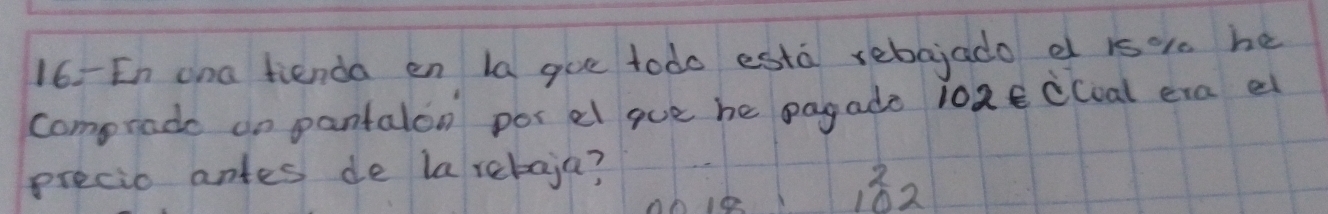 16.- En una tienda en la que todo está rebajado el 15% he
Comprado un pantalón por el que he pagado 102 € ¿Cual era el
precio antes de la rebaja?
2
102